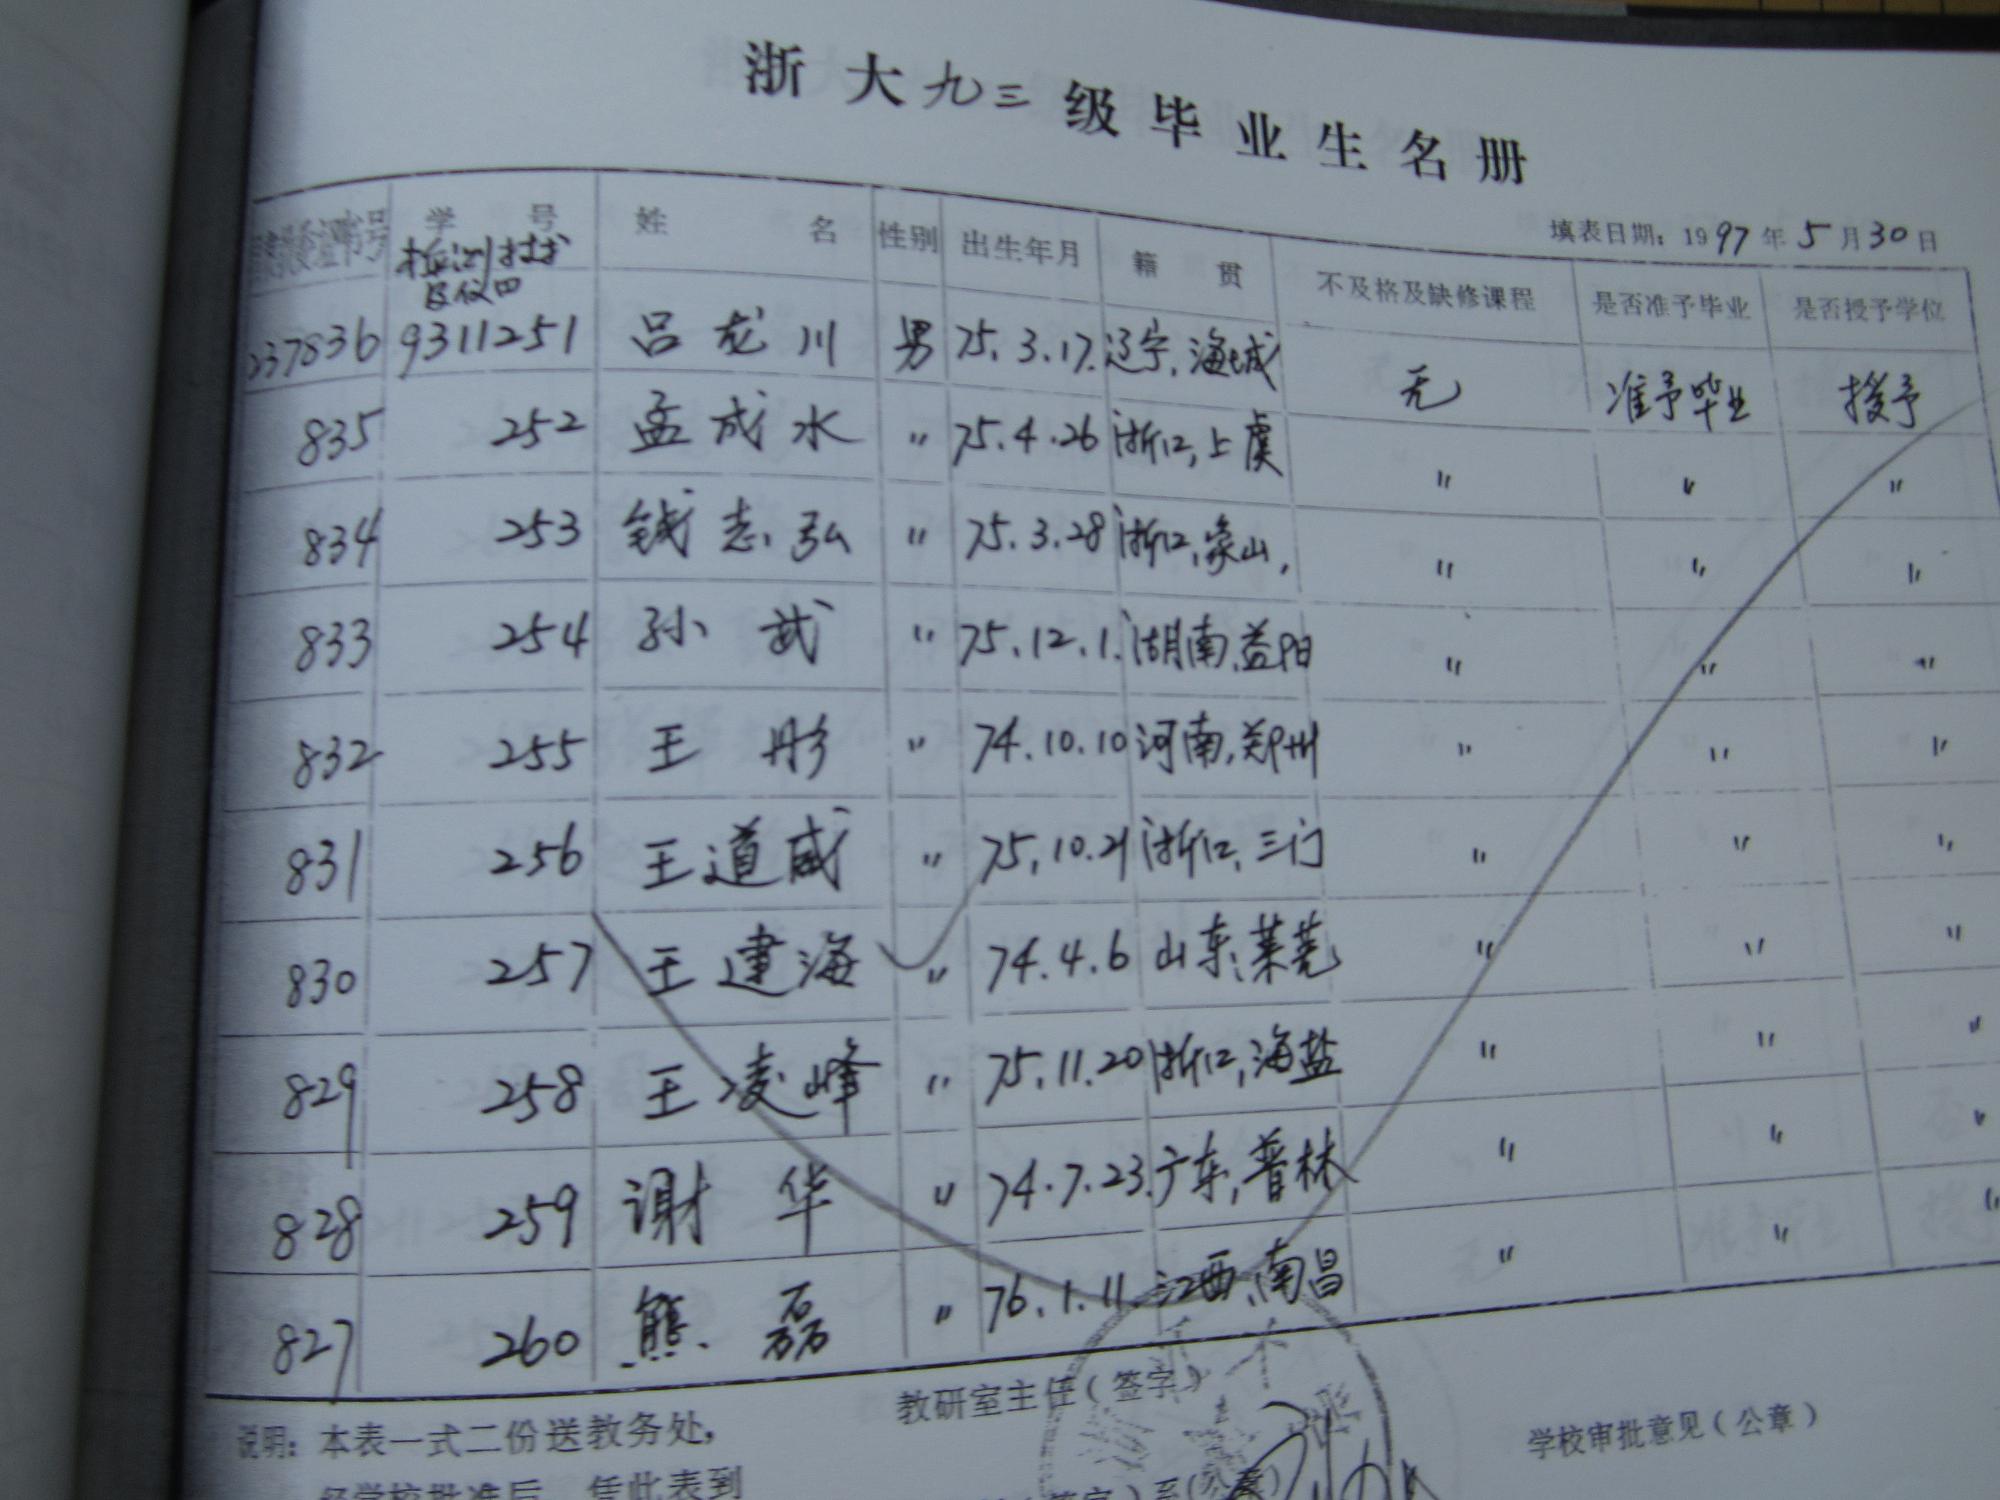 浙大九三级毕业生名册
填表日期：1997年5月30日
证书号 学号 姓名 性别 出生年月 籍贯 不及格及缺修课程 是否准予毕业 是否授予学位
检测技术
及仪四
237836 9311251 吕龙川 男 75.3.17. 辽宁,海城 无 准予毕业 授予
835 252 孟成水 〃 75.4.26 浙江,上虞 〃 〃 〃
834 253 钱志弘 〃 75.3.28 浙江,象山, 〃 〃 〃
833 254 孙武 〃 75.12.1. 湖南,益阳 〃 〃 〃
832 255 王彤 〃 74.10.10 河南,郑州 〃 〃 〃
831 256 王道威 〃 75.10.21 浙江,三门 〃 〃 〃
830 257 王建海 〃 74.4.6 山东,莱芜 〃 〃 〃
829 258 王凌峰 〃 75.11.20 浙江,海盐 〃 〃 〃
828 259 谢华 〃 74.7.23. 广东,普林 〃 〃 〃
827 260 熊磊 〃 76.1.11. 江西,南昌 〃 〃 〃
说明：本表一式二份送教务处, 教研室主任（签字） 学校审批意见（公章）
经学校批准后 凭此表到